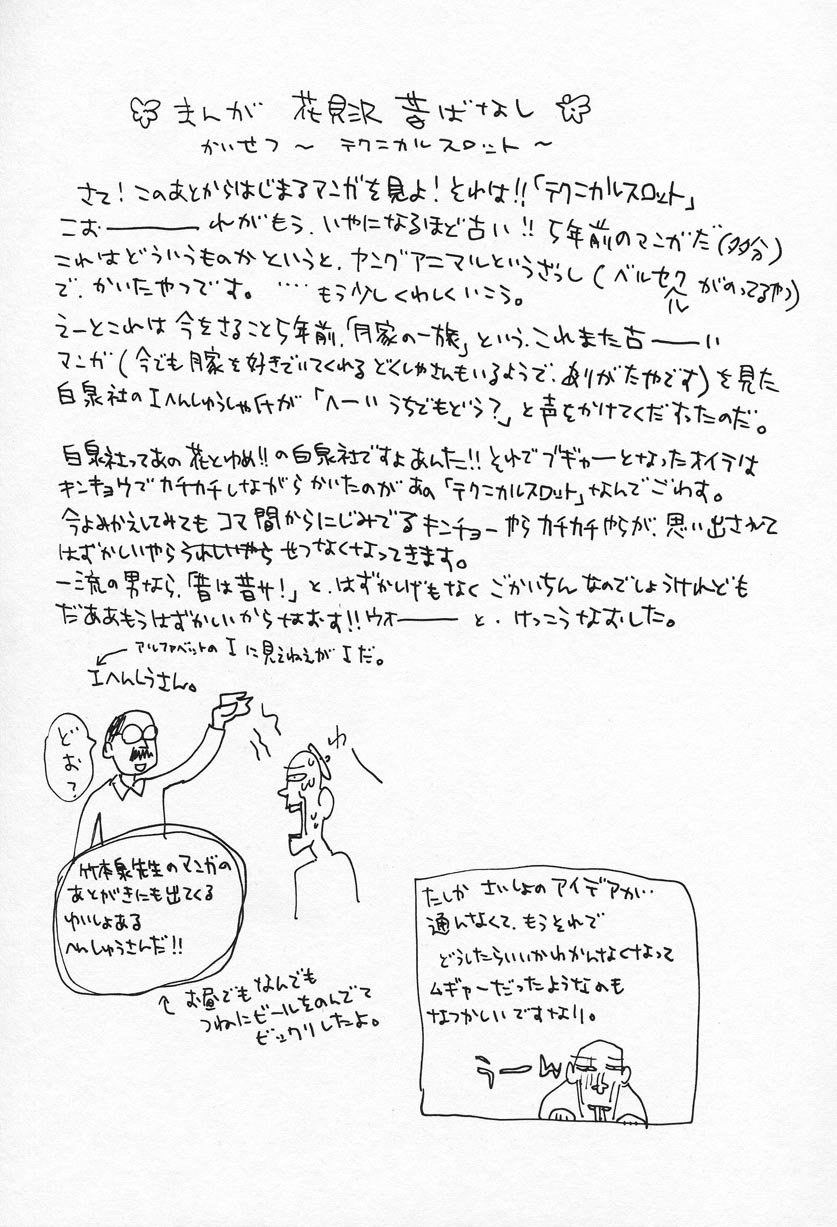 まんが 花見沢 昔ばなし
かいせつ～ テクニカルスロット～
さて！このあとからはじまるマンガを見よ！それは!!「テクニカルスロット」
こおーーーーれがもう、いやになるほど古い!! 5年前のマンガだ(多分)
これはどういうものかというと、ヤングアニマルというざっし(ベルセクルがのってるやつ)
で、かいたやつです。 ‥‥もう少しくわしくいこう。
えーとこれは今をさること5年前、「月家の一族」という、これまた古ーーい
マンガ(今でも月家を好きでいてくれるどくしゃさんもいるようで、ありがたやです)を見た
白泉社のIへんしゅうしゃ氏が「へーいうちでもどう?」と声をかけてくださったのだ。
白泉社ってあの花とゆめ!!の白泉社ですよあんた!! それでブギャーとなったオイラは
キンキョウでカチカチしながらかいたのがあの「テクニカルスロット」なんでごわす。
今よみかえしてみてもコマ間からにじみでるキンチョーやらカチカチやらが、思い出されて
はずかしいやらうれしいやらせつなくなってきます。
一流の男なら、「昔は昔サ!」と、はずかしげもなくごかいちんなのでしょうけれども
だああもうはずかしいからなおす!!ウオーーーと、けっこうなおした。
アルファベットのIに見えねえがIだ。
Iへんしうさん。
どお?
わ
竹本泉先生のマンガの
あとがきにも出てくる
ゆいしょある
へんしゅうさんだ!!
お昼でもなんでも
つねにビールをのんでて
ビックリしたよ。
たしか さいしょのアイデアが‥
通んなくて、もうそれで
どうしたらいいかわかんなくなって
ムギャーだったようなのも
なつかしいですなり。
うーん